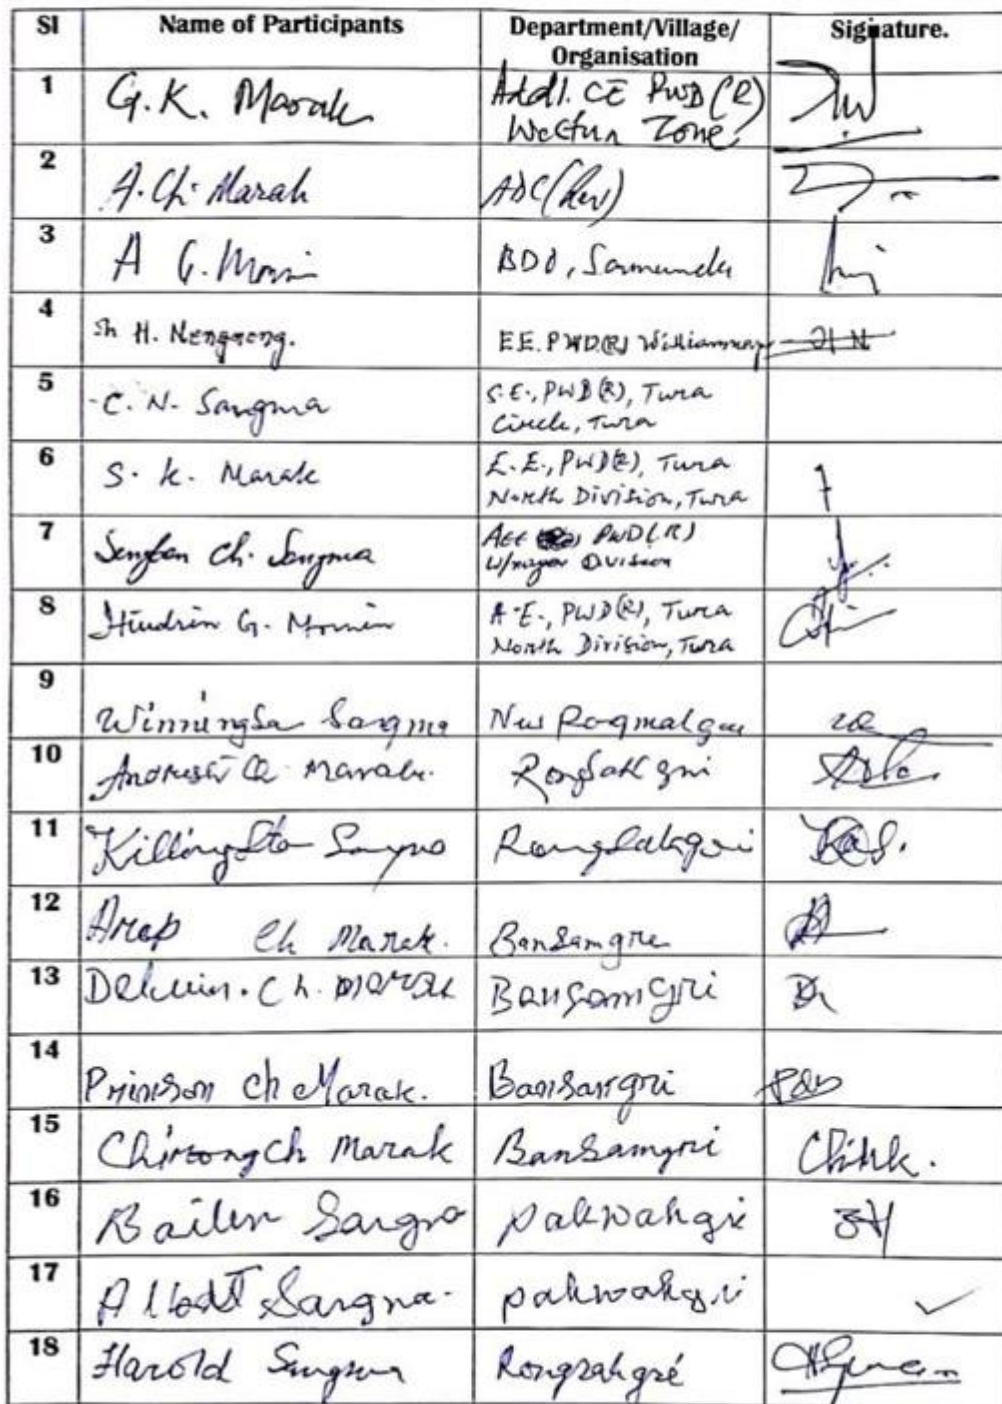 Sl Name of Participants Department/Village/ Signature.
Organisation
1 G.K. Marak Addl. CE PWD (R)
Western Zone
2 A. Ch. Marak ADC (Rev)
3 A G. Momin BDO, Samanda
4 Sh H. Nengnong. EE. PWD(R) Williamnagar
5 C. N. Sangma S.E., PWD(R), Tura
Circle, Tura
6 S. K. Marak E.E., PWD(R), Tura
North Division, Tura
7 Ch. Sangma AEE PWD(R)
W/nagar Division
8 G. Momin A.E., PWD(R), Tura
North Division, Tura
9 Winningson Sangma New
10 Marak. Rongsakgri
11 Sangma Rongsakgri
12 Arap Ch Marak. Bansamgre
13 Ch. Marak Bansamgri
14 Prinson Ch Marak. Bansamgri
15 Chirong Ch Marak Bansamgri
16 Sangma Pakwakgri
17 Sangma. Pakwakgri
18 Harold Sangma Rongsakgre